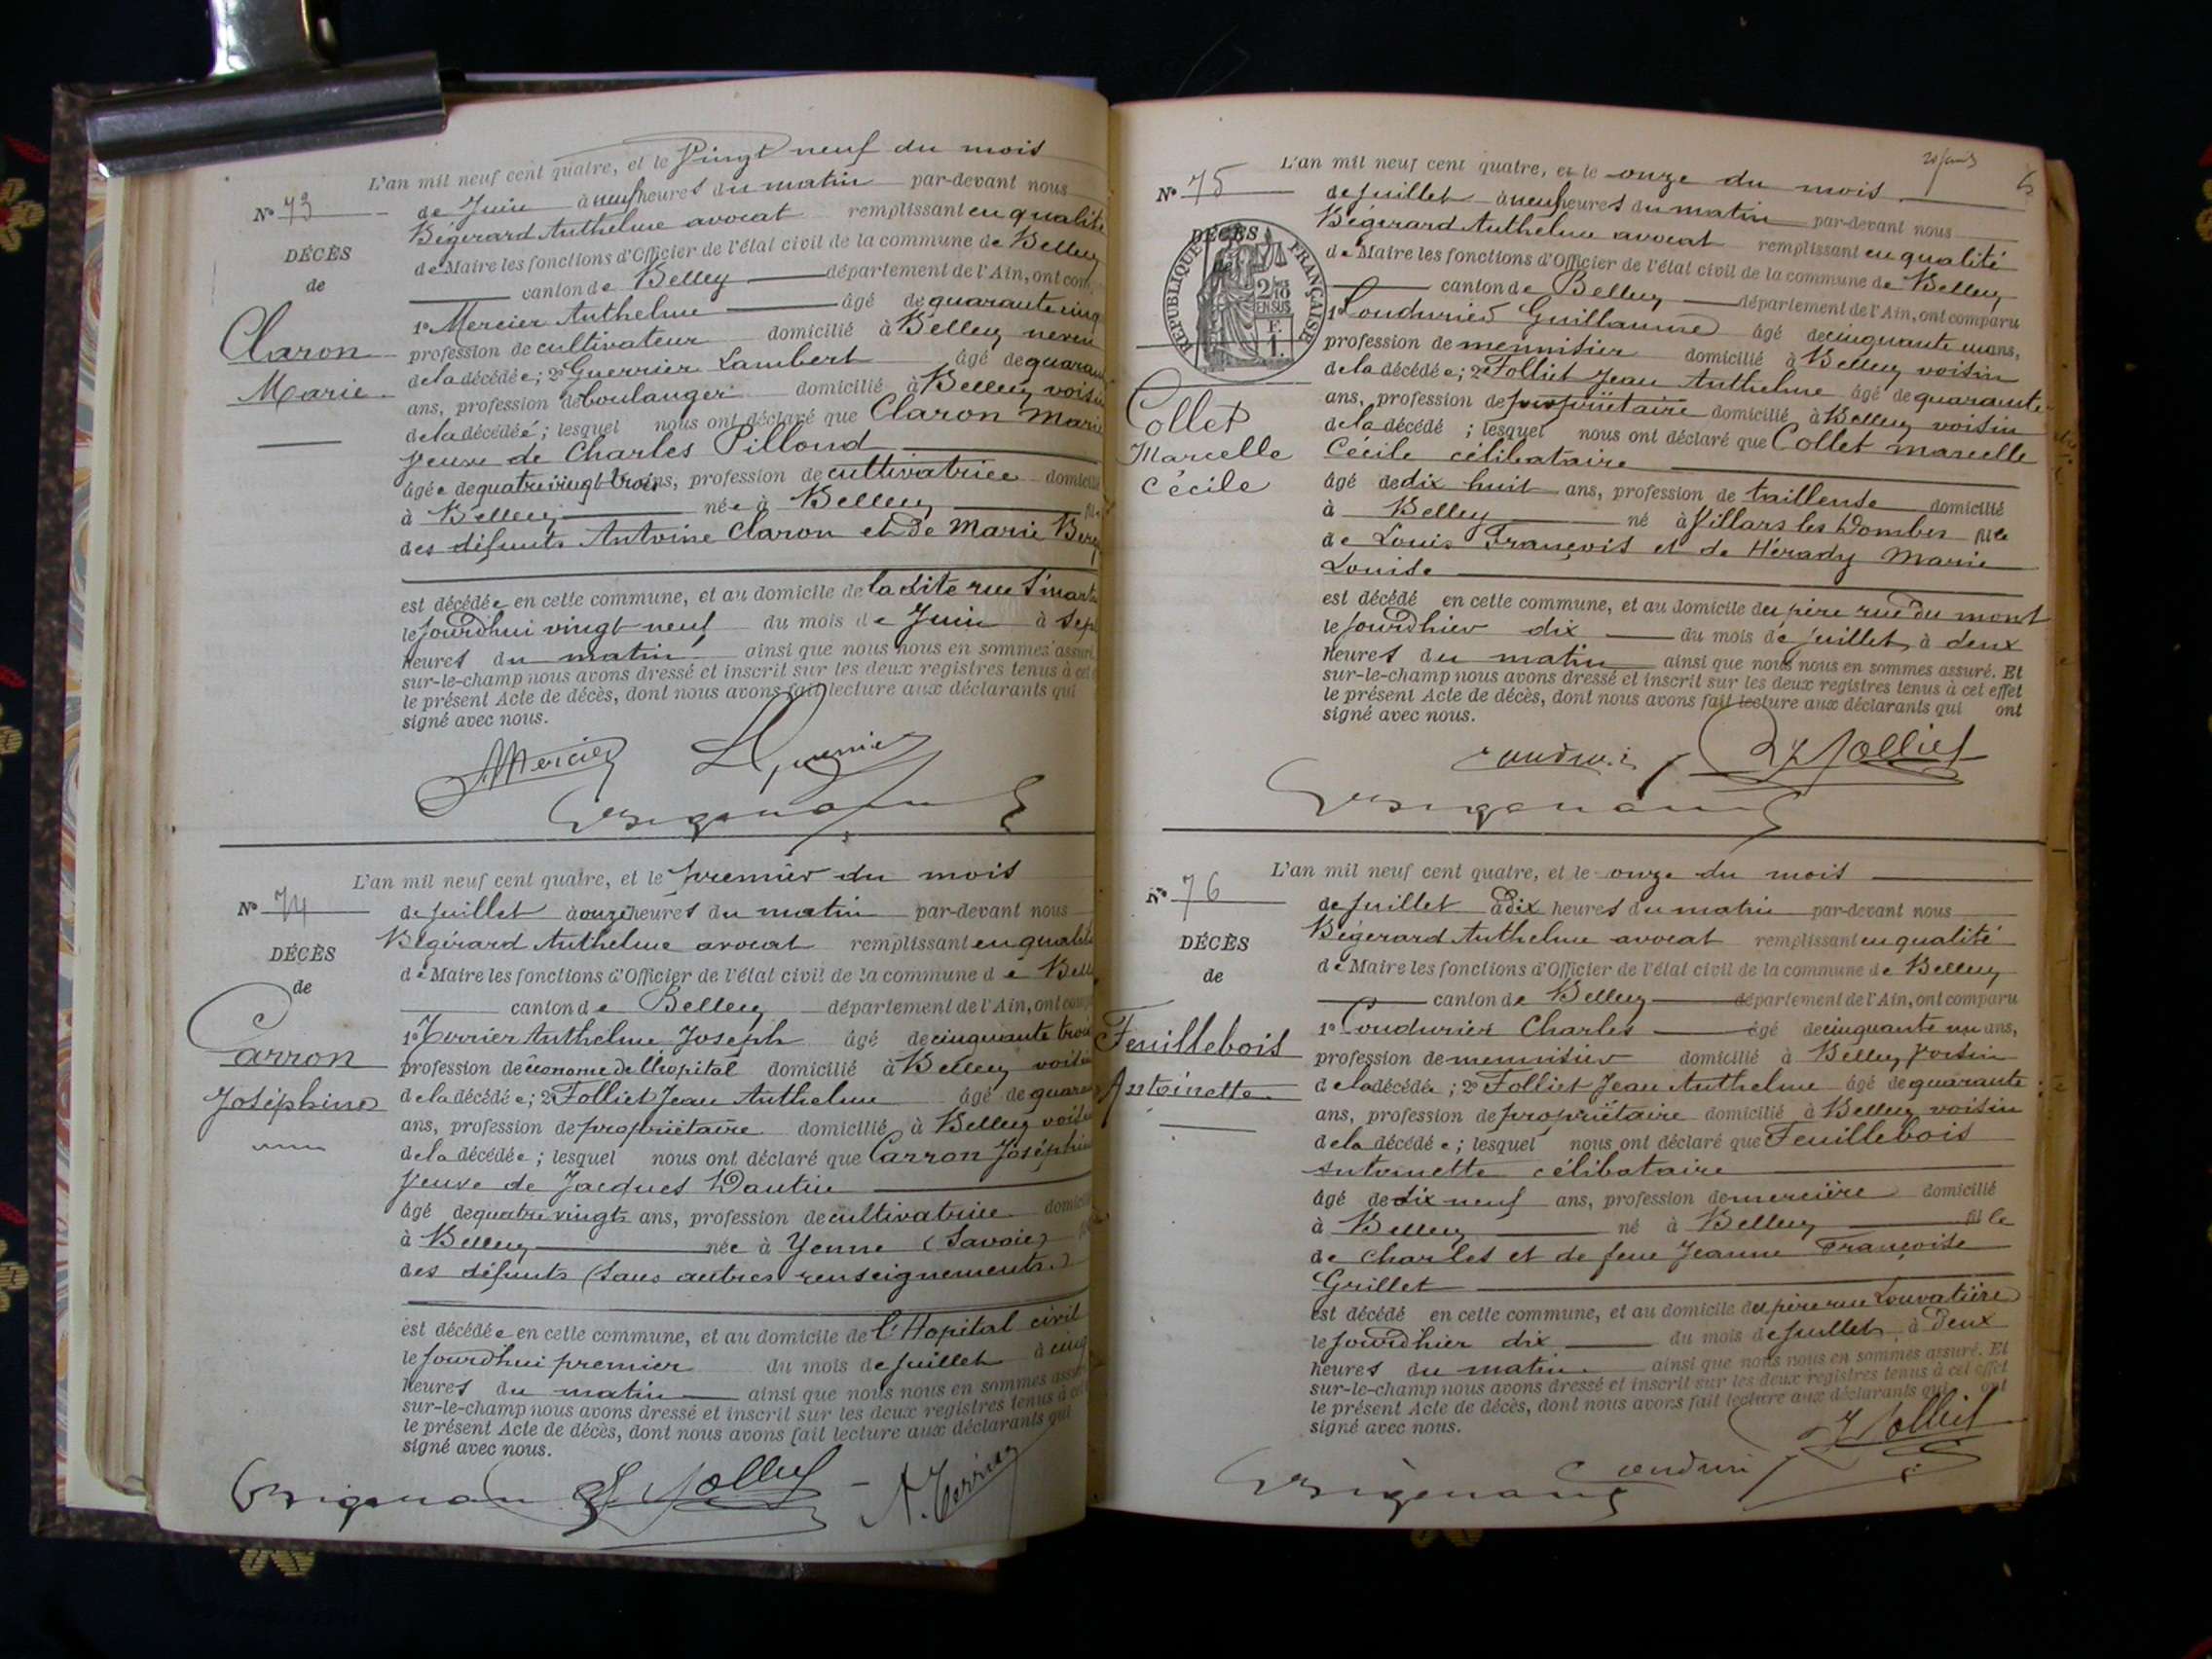 L'an mil neuf cent quatre, et le Vingt neuf du mois
N° 73
de Juin à neuf heures du matin par-devant nous
Bégerard Anthelme avocat remplissant en qualité
DÉCÈS
de Maire les fonctions d'Officier de l'état civil de la commune de Belley
de
canton de Belley département de l'Ain, ont com
1° Mercier Anthelme âgé de quarante cinq
Claron
profession de cultivateur domicilié à Belley neveu
Marie
de la décédée; 2° Guerrier Lambert âgé de quaran
ans, profession de boulanger domicilié à Belley voisin
de la décédée; lesquel nous ont déclaré que Claron Marie
veuve de Charles Pillond
âgée de quatre vingt trois ans, profession de cultivatrice domicilié
à Belley née à Belley
des défunts Antoine Claron et de Marie
est décédée en cette commune, et au domicile de la dite rue
le jourd'hui vingt neuf du mois de Juin à sep
heures du matin ainsi que nous nous en sommes assuré
sur-le-champ nous avons dressé et inscrit sur les deux registres tenus à cet
le présent Acte de décès, dont nous avons fait lecture aux déclarants qui
signé avec nous.
Mercier
L'an mil neuf cent quatre, et le premier du mois
N° 74
de juillet à onze heures du matin par-devant nous
Bégérard Anthelme avocat remplissant en qualité
DÉCÈS
de Maire les fonctions d'Officier de l'état civil de la commune de Bell
de
canton de Belley département de l'Ain, ont comp
1° Terrier Anthelme Joseph âgé de cinquante trois
Carron
profession de économe de l'hopital domicilié à Belley voisin
Joséphine
de la décédée; 2° Folliet Jean Anthelme âgé de quaran
ans, profession de propriétaire domicilié à Belley voisin
de la décédée; lesquel nous ont déclaré que Carron Joséphin
veuve de Jacques Dantin
âgé de quatre vingts ans, profession de cultivatrice domicilié
à Belley née à Yenne (Savoie)
des défunts (sans autres renseignements.)
est décédée en cette commune, et au domicile de l'Hopital civil
le jourd'hui premier du mois de juillet à cinq
heures du matin ainsi que nous nous en sommes assuré
sur-le-champ nous avons dressé et inscrit sur les deux registres tenus à cet
le présent Acte de décès, dont nous avons fait lecture aux déclarants qui
signé avec nous.
Folliet A. Terrier
L'an mil neuf cent quatre, et le onze du mois
N° 75
de juillet à neuf heures du matin par-devant nous
Bégerard Anthelme avocat remplissant en qualité
DÉCÈS
RÉPUBLIQUE FRANÇAISE
2/10 EN SUS
F. 1.
de Maire les fonctions d'Officier de l'état civil de la commune de Belley
canton de Belley département de l'Ain, ont comparu
1° Coudurier Guillaume âgé de cinquante un ans,
profession de menuisier domicilié à Belley voisin
de la décédée; 2° Folliet Jean Anthelme âgé de quarante
Collet
Marcelle
Cécile
ans, profession de propriétaire domicilié à Belley voisin
de la décédé ; lesquel nous ont déclaré que Collet marcelle
Cécile célibataire
âgé de dix huit ans, profession de tailleuse domicilié
à Belley né à Villars les Dombes fille
de Louis François et de Hérady Marie
Louise
est décédé en cette commune, et au domicile du père rue du mont
le jourdhier dix du mois de juillet à deux
heures du matin ainsi que nous nous en sommes assuré. Et
sur-le-champ nous avons dressé et inscrit sur les deux registres tenus à cet effet
le présent Acte de décès, dont nous avons fait lecture aux déclarants qui ont
signé avec nous.
Folliet
L'an mil neuf cent quatre, et le onze du mois
N° 76
de juillet à dix heures du matin par-devant nous
Bégerard Anthelme avocat remplissant en qualité
DÉCÈS
de Maire les fonctions d'Officier de l'état civil de la commune de Belley
de
canton de Belley département de l'Ain, ont comparu
1° Coudurier Charles âgé de cinquante un ans,
Feuillebois
profession de menuisier domicilié à Belley voisin
Antoinette
de la décédée; 2° Folliet Jean Anthelme âgé de quarante
ans, profession de propriétaire domicilié à Belley voisin
de la décédée; lesquel nous ont déclaré que Feuillebois
Antoinette célibataire
âgé de dix neuf ans, profession de mercière domicilié
à Belley né à Belley fille
de Charles et de feue Jeanne Françoise
Grillet
est décédé en cette commune, et au domicile du père rue Louvatière
le jourdhier dix du mois de juillet à deux
heures du matin. ainsi que nous nous en sommes assuré. Et
sur-le-champ nous avons dressé et inscrit sur les deux registres tenus à cet effet
le présent Acte de décès, dont nous avons fait lecture aux déclarants qui ont
signé avec nous.
Folliet